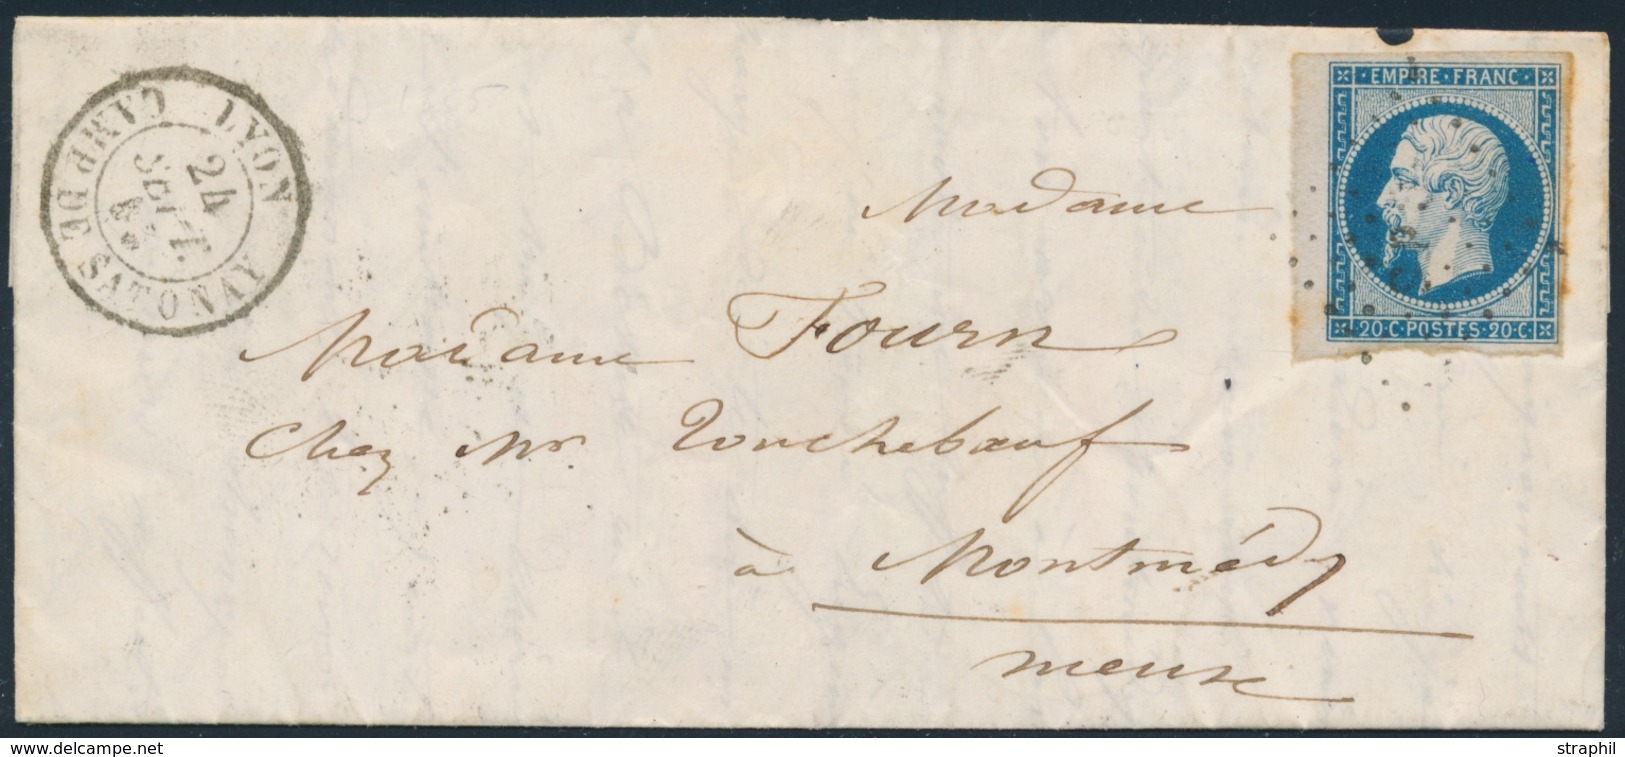 LYON
CAMP DE SATONAY
24
SEPT.
EMPIRE·FRANC·
20·C·POSTES·20·C·
Madame
Madame Fourn
Chez Mr Touchebœuf
à Montmédy
Meuse
www.delcampe.net
straphil